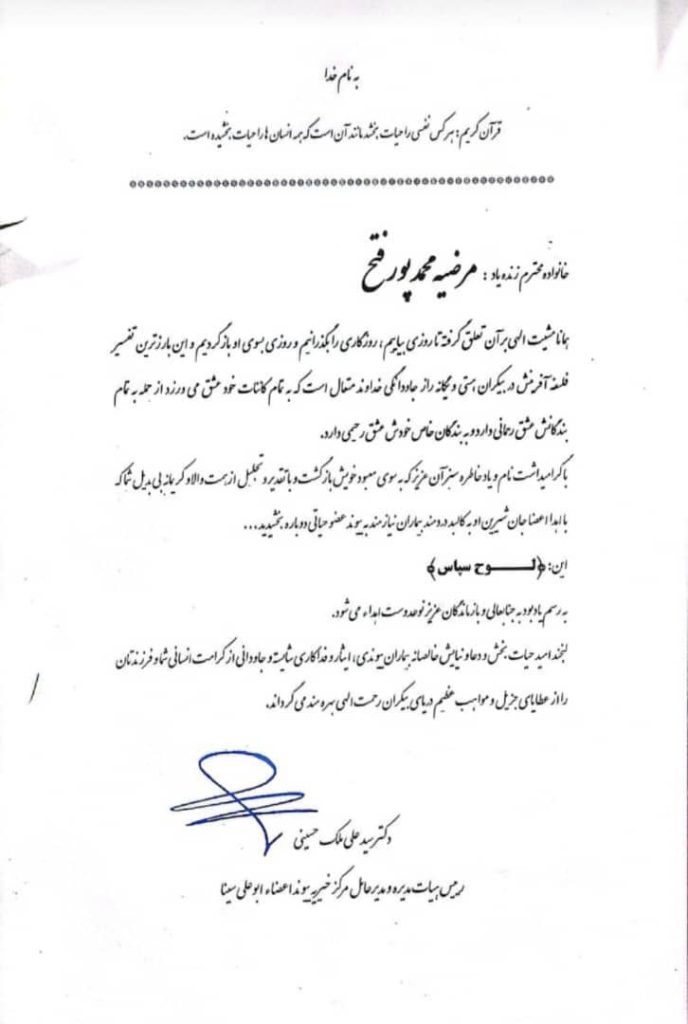 به نام خدا
قرآن کریم: هر کس نفسی را حیات بخشد مانند آن است که همه انسان ها را حیات بخشیده است.
خانواده محترم زنده یاد : مرضیه محمد پور فتح
همانا مشیت الهی بر آن تعلق گرفته تا روزی بیاییم، روزگاری را بگذرانیم و روزی بسوی او باز گردیم و این بارزترین تفسیر
فلسفه آفرینش در بیکران هستی و یگانه راز جاودانگی خداوند متعال است که به تمام کائنات خود عشق می ورزد از جمله به تمام
بندگانش عشق رحمانی دارد و به بندگان خاص خودش عشق رحیمی دارد.
با گرامیداشت نام و یاد خاطره سبز آن عزیز که به سوی معبود خویش بازگشت و با تقدیر و تجلیل از همت والا و کریمانه بی بدیل شما که
با اهدا اعضا جان شیرین او به کالبد دردمند بیماران نیازمند به پیوند عضو حیاتی دوباره بخشیدید...
این: ﴿لـــوح سپاس﴾
به رسم یادبود به جنابعالی و بازماندگان عزیز نوعدوست اهداء می شود.
لبخند امید حیات بخش و دعا و نیایش خالصانه بیماران پیوندی، ایثار و فداکاری شایسته و جاودانی از کرامت انسانی شما و فرزندتان
را از عطایای جزیل و مواهب عظیم دریای بیکران رحمت الهی بهره مند می گرداند.
دکتر سید علی ملک حسینی
رئیس هیات مدیره و مدیر عامل مرکز خیریه پیوند اعضاء ابوعلی سینا